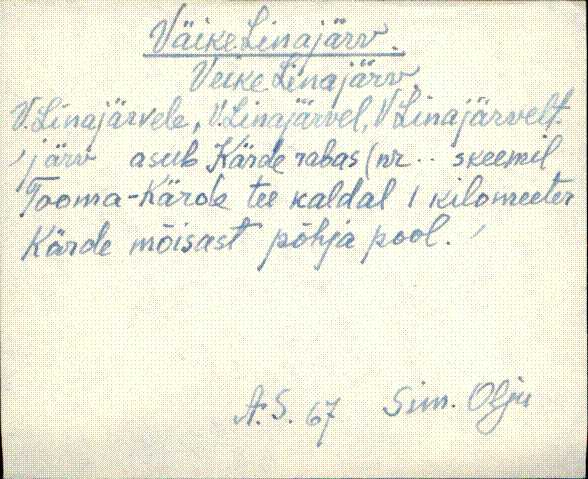 Väike Linajärv.
Veike Linajärv.
V.Linajärvele, V.Linajärvel, V Linajärvelt.
'järv asub Kärde rabas (nr .. skeemil
Tooma-Kärde tee kaldal 1 kilomeeter
Kärde mõisast põhja pool.'
A.S. 67 Sim. Olju